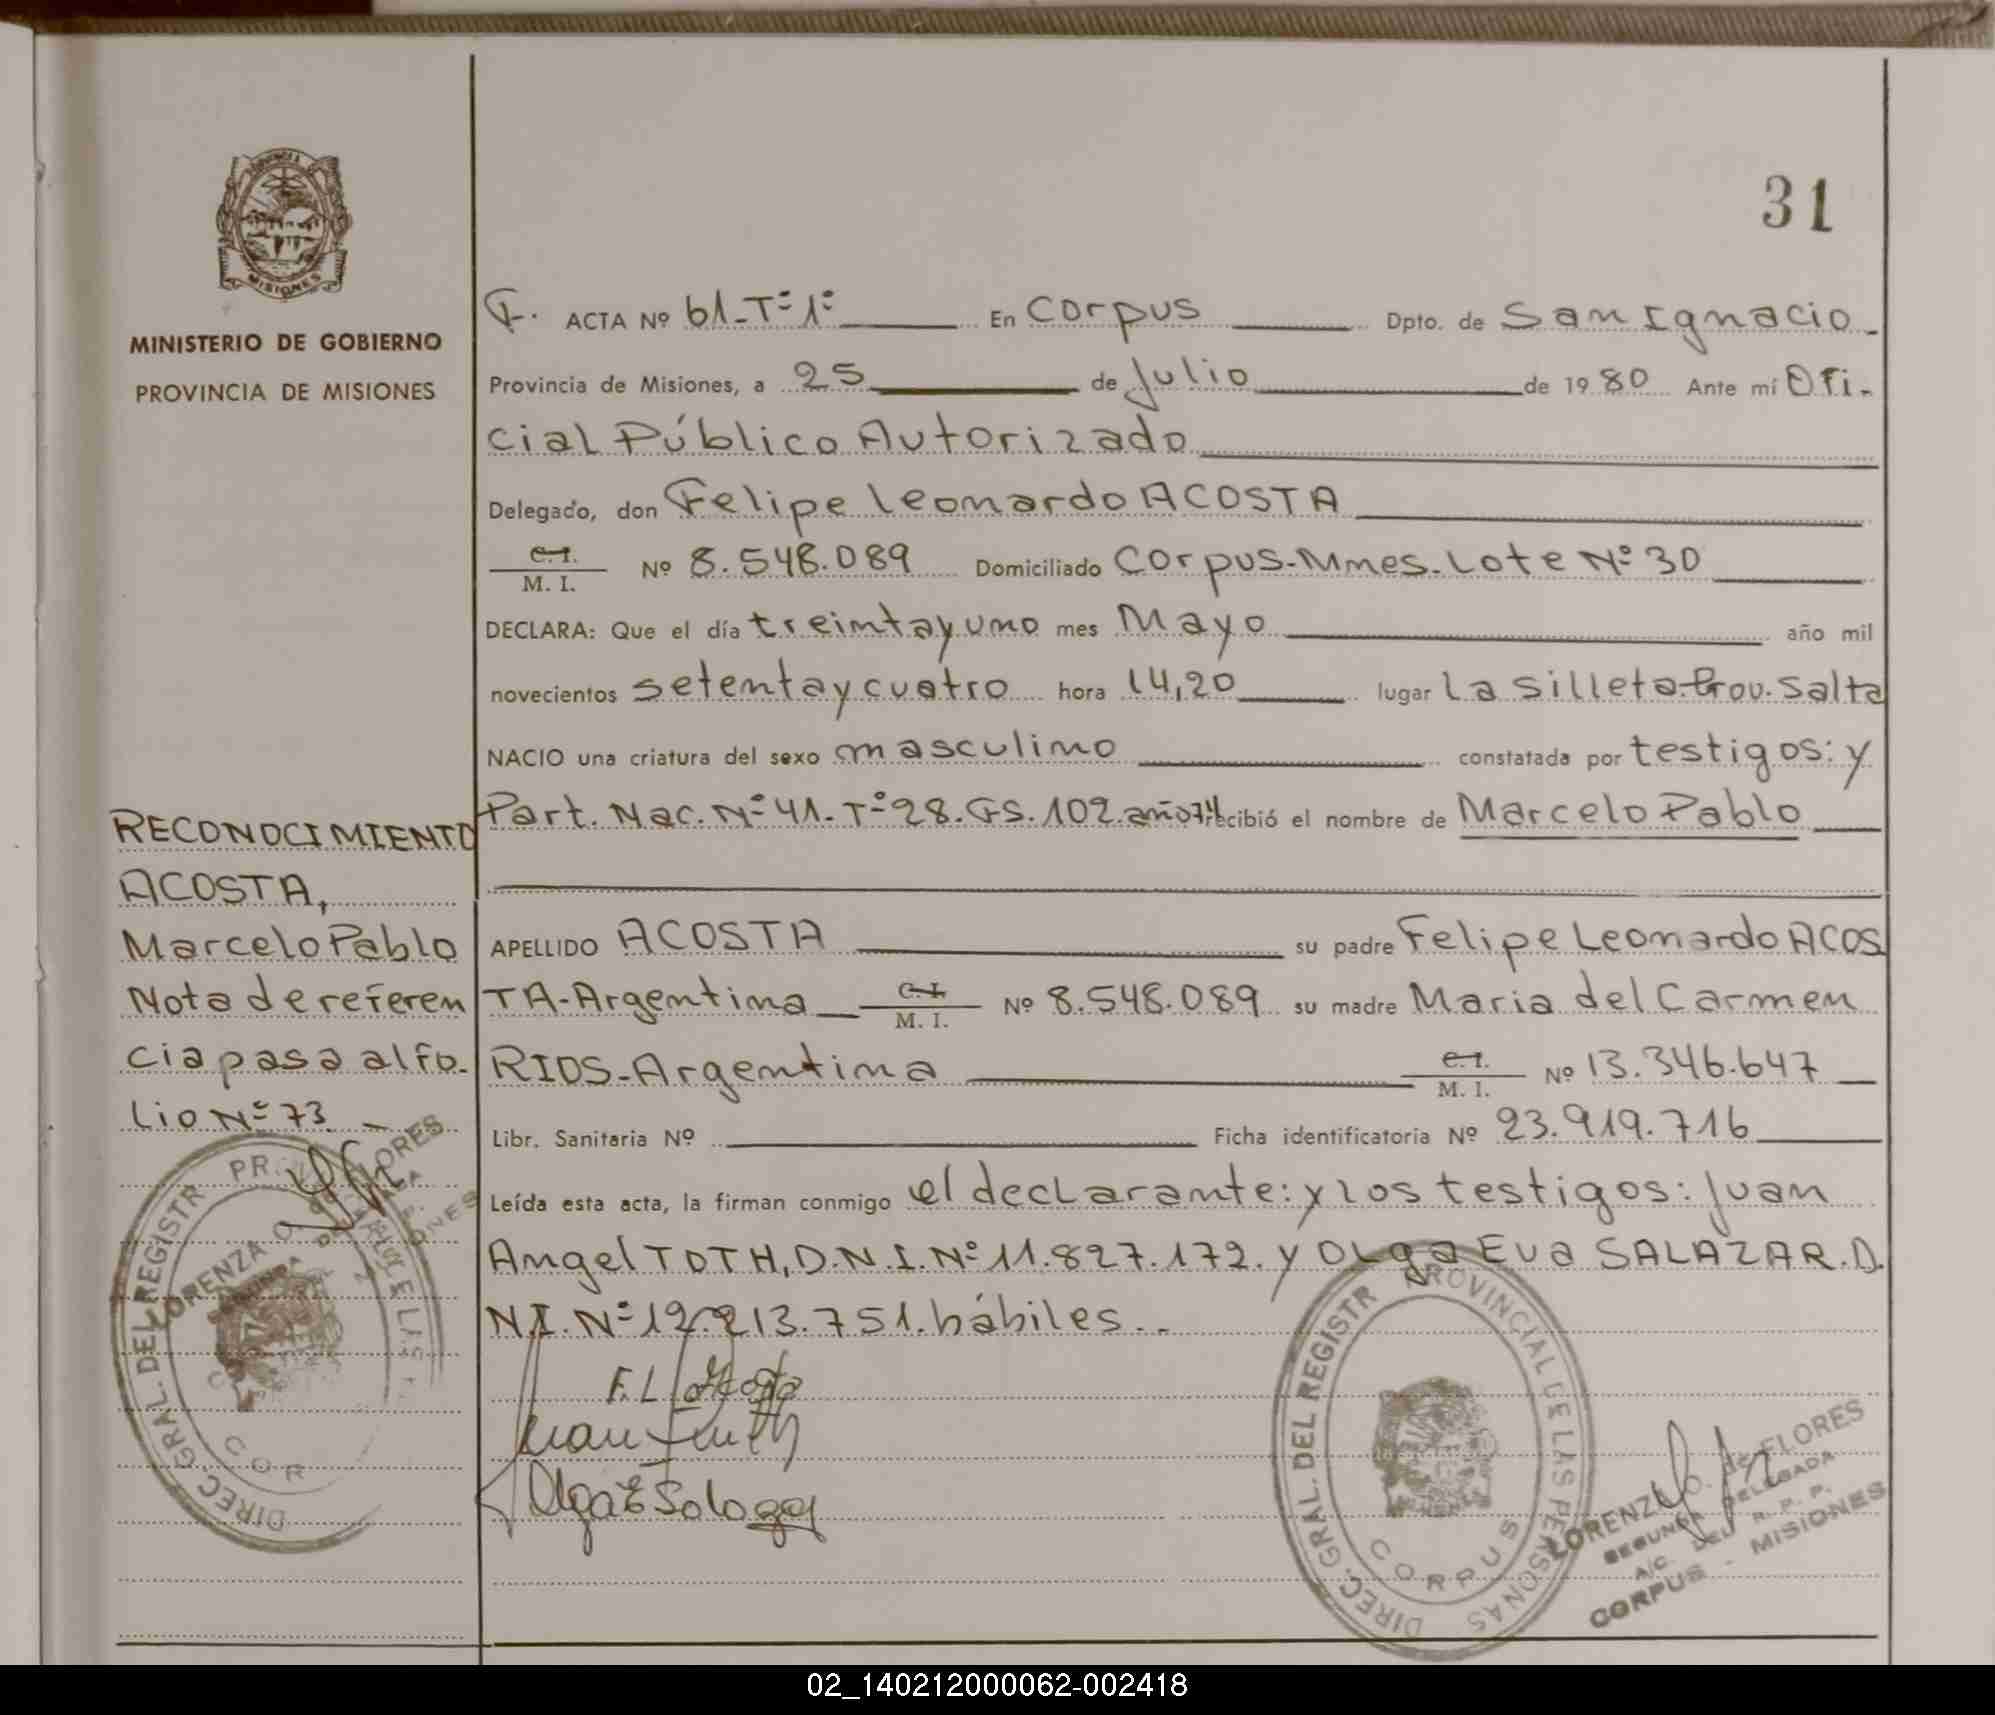 31
PROVINCIA
MISIONES
MINISTERIO DE GOBIERNO
PROVINCIA DE MISIONES
F. ACTA Nº 61-Tº 1º En Corpus Dpto. de San Ignacio
Provincia de Misiones, a 25 de Julio de 1980 Ante mí Ofi-
cial Público Autorizado
Delegado, don Felipe Leonardo ACOSTA
C.I.
M. I. Nº 8.548.089 Domiciliado Corpus-Mnes. Lote Nº 30
DECLARA: Que el día treinta y uno mes Mayo año mil
novecientos setenta y cuatro hora 14,20 lugar La Silleta-Prov. Salta
NACIO una criatura del sexo masculino constatada por testigos: y
Part. Nac. Nº 41-Tº 28. Fs. 102. año 74 recibió el nombre de Marcelo Pablo
APELLIDO ACOSTA su padre Felipe Leonardo ACOS
TA-Argentina C. I. M. I. Nº 8.548.089 su madre Maria del Carmen
RIOS-Argentina C.I. M. I. Nº 13.346.647
Libr. Sanitaria Nº Ficha identificatoria Nº 23.919.716
Leída esta acta, la firman conmigo el declarante: y los testigos: Juan
Angel TOTH, D.N.I. Nº 11.827.172. y Olga Eva SALAZAR. D.
N.I. Nº 12.213.751. hábiles..
RECONOCIMIENTO
ACOSTA,
Marcelo Pablo
Nota de referen
cia pasa al fo-
lio Nº 73.
F. L. Acosta
DIREC. GRAL. DEL REGISTR PROVINCIAL DE LAS PERSONAS
CORPUS
LORENZA O. de FLORES
SEGUNDA DELEGADA
A/C. DEL R. P. P.
CORPUS - MISIONES
02_140212000062-002418